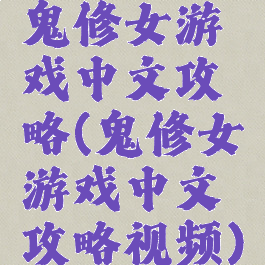 鬼修女游
戏中文攻
略(鬼修女
游戏中文
攻略视频)